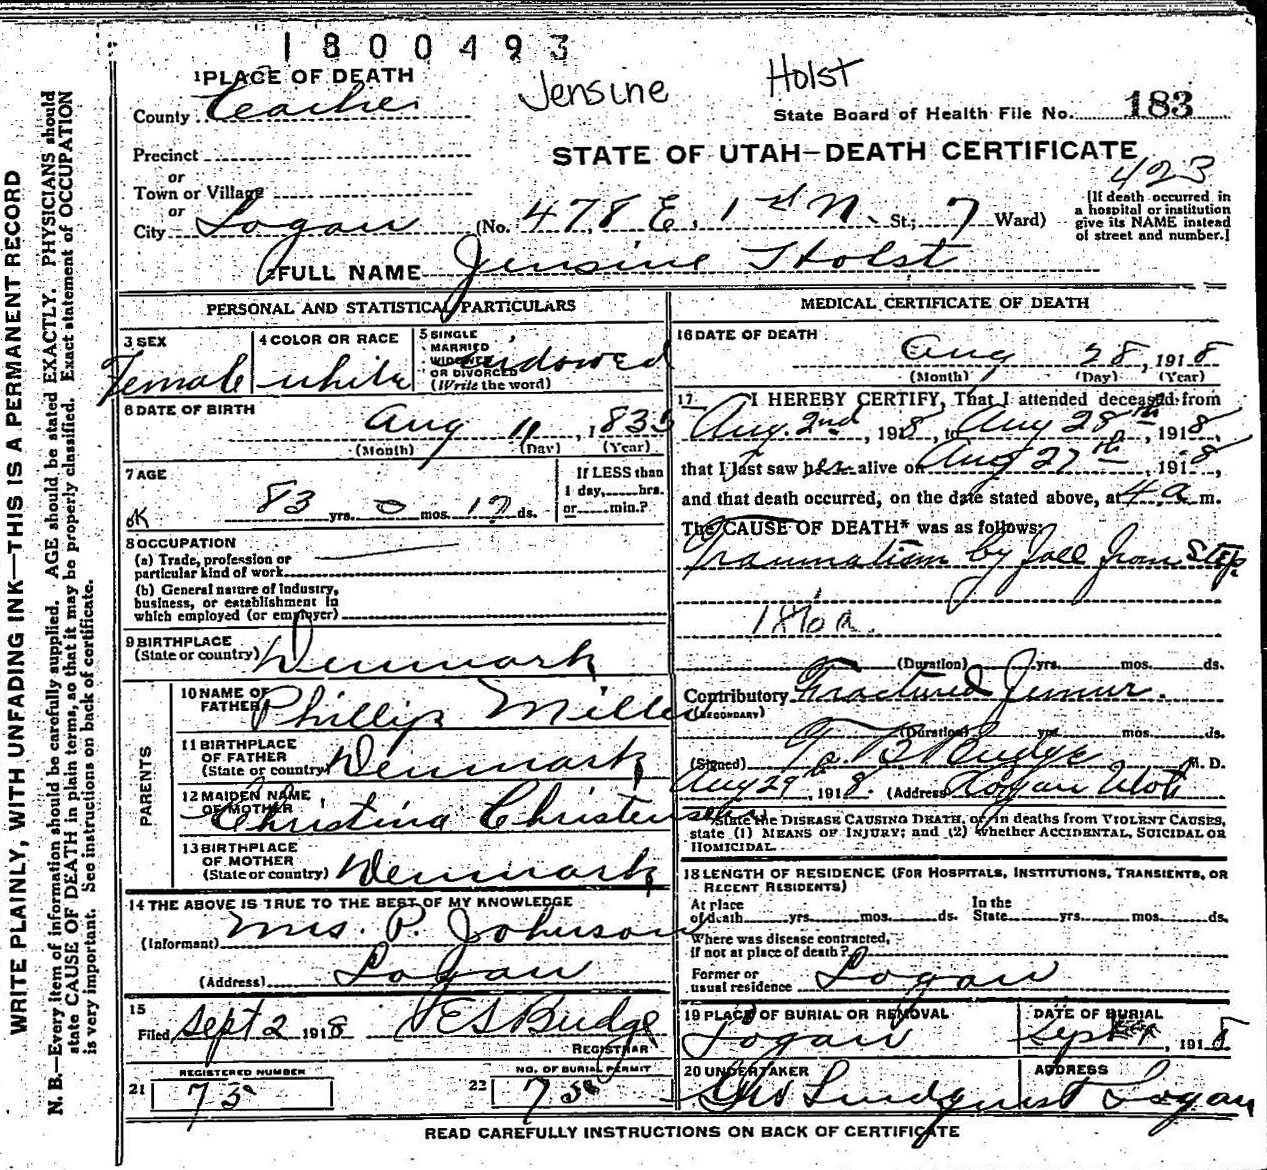 1800493
Jensine Holst
1 PLACE OF DEATH
County Cache
State Board of Health File No. 183
Precinct
or
Town or Village
or
City Logan
STATE OF UTAH—DEATH CERTIFICATE
423
(No. 478 E. 1st N. St.; 7 Ward)
[If death occurred in
a hospital or institution
give its NAME instead
of street and number.]
2 FULL NAME Jensine Holst
PERSONAL AND STATISTICAL PARTICULARS
3 SEX Female
4 COLOR OR RACE white
5 SINGLE
MARRIED
WIDOWED
OR DIVORCED
(Write the word)
widowed
6 DATE OF BIRTH
Aug 11, 1835
(Month) (Day) (Year)
7 AGE
OK 83 yrs. 0 mos. 17 ds.
If LESS than
1 day, hrs.
or min.?
8 OCCUPATION
(a) Trade, profession or
particular kind of work
(b) General nature of industry,
business, or establishment in
which employed (or employer)
9 BIRTHPLACE
(State or country) Denmark
PARENTS
10 NAME OF
FATHER Phillip Miller
11 BIRTHPLACE
OF FATHER
(State or country) Denmark
12 MAIDEN NAME
OF MOTHER Christina Christensen
13 BIRTHPLACE
OF MOTHER
(State or country) Denmark
14 THE ABOVE IS TRUE TO THE BEST OF MY KNOWLEDGE
(Informant) Mrs. P. Johnson
(Address) Logan
15
Filed Sept 2 1918 ES Budge
REGISTRAR
REGISTERED NUMBER
21 73
NO. OF BURIAL PERMIT
22 75
MEDICAL CERTIFICATE OF DEATH
16 DATE OF DEATH
Aug 28, 1918
(Month) (Day) (Year)
17 I HEREBY CERTIFY, That I attended deceased from
Aug. 2nd, 1918, to Aug 28th, 1918,
that I last saw her alive on Aug 27th, 1918,
and that death occurred, on the date stated above, at 4 a. m.
The CAUSE OF DEATH* was as follows:
Traumatism by fall from Step.
186a.
(Duration) yrs. mos. ds.
Contributory Fractured femur.
(SECONDARY)
(Duration) yrs. mos. ds.
(Signed) T. B. Budge M. D.
Aug 29th, 1918. (Address) Logan Utah
*State the DISEASE CAUSING DEATH, or, in deaths from VIOLENT CAUSES,
state (1) MEANS OF INJURY; and (2) whether ACCIDENTAL, SUICIDAL OR
HOMICIDAL.
18 LENGTH OF RESIDENCE (FOR HOSPITALS, INSTITUTIONS, TRANSIENTS, OR
RECENT RESIDENTS)
At place
of death yrs. mos. ds.
In the
State yrs. mos. ds.
Where was disease contracted,
if not at place of death?
Former or
usual residence Logan
19 PLACE OF BURIAL OR REMOVAL
Logan
DATE OF BURIAL
Sept 1, 1918
20 UNDERTAKER
Geo Lindquist
ADDRESS
Logan
READ CAREFULLY INSTRUCTIONS ON BACK OF CERTIFICATE
WRITE PLAINLY, WITH UNFADING INK—THIS IS A PERMANENT RECORD
N. B.—Every item of information should be carefully supplied. AGE should be stated EXACTLY. PHYSICIANS should
state CAUSE OF DEATH in plain terms, so that it may be properly classified. Exact statement of OCCUPATION
is very important. See instructions on back of certificate.